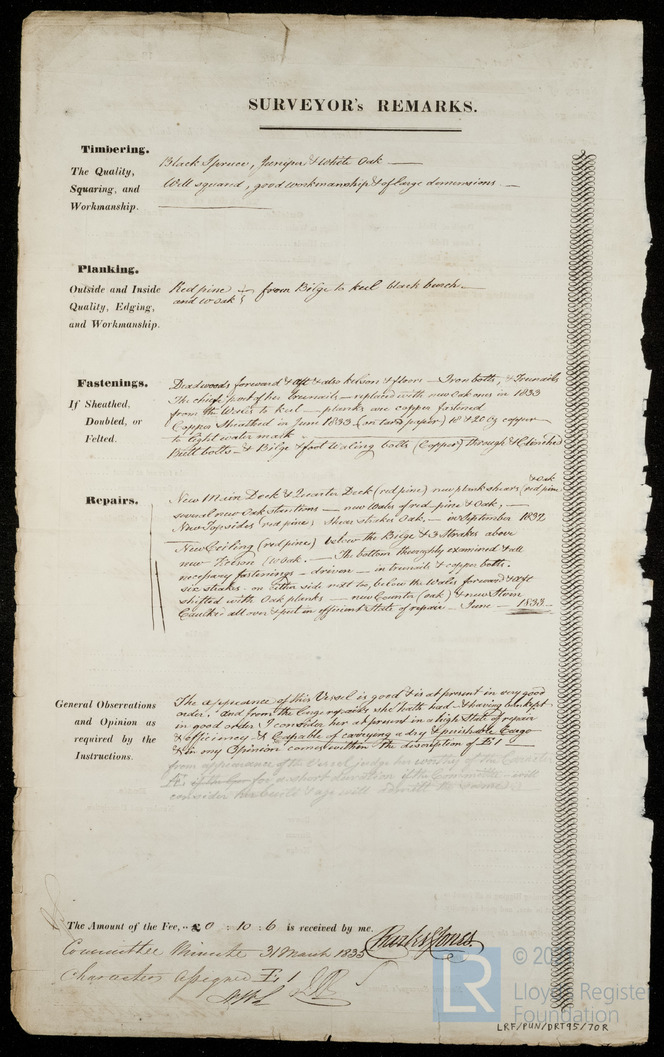 SURVEYOR's REMARKS.
Timbering.
The Quality,
Squaring, and
Workmanship.
Black Spruce, Juniper & White Oak
Well squared, good workmanship & of large dimensions
Planking.
Outside and Inside
Quality, Edging,
and Workmanship.
Red pine from Bilge to keel black burch
and W oak
Fastenings.
If Sheathed,
Doubled, or
Felted.
Deadwoods forward & aft & also kelson & floors — Iron bolts, & Trunails
The chief part of her Trunails — replaced with new Oak ones in 1833
from the Wales to keel — planks are copper fastened
Copper Sheathed in June 1833 (on tard paper) 18 & 20 oz copper
to light water mark
Butt bolts — & Bilge & foot Waling bolts (Copper) through & Clenched
Repairs.
New Main Deck & Quarter Deck (red pine) new plank shears (red pine & oak
several new Oak stanctions — new Wales of red pine & Oak,
New Topsides (red pine) Shear strakes Oak, — in September 1832
New Ceiling (red pine) below the Bilge & 3 Strakes above
new W oak. — The bottom thoroughly examined & all
necessary fastenings — driven — in trunails & copper bolts.
six strakes on either side next to, below the Wales forward & aft
shifted with Oak planks — new Counter (oak) & new Stern
Caulked all over & put in efficient State of repair — June — 1833
General Observations
and Opinion as
required by the
Instructions.
The appearance of this Vessel is good & is at present in very good
order, and from the large repairs she hath had & having been kept
in good order I consider her at present in a high State of repair
& efficiency & Capable of carrying a dry & perishable Cargo
& in my Opinion comes within the discription of Æ 1
from appearance of the Vessel judge her worthy of the Caracter
Æ for a short duration if the Committee will
consider her built & age will the same
The Amount of the Fee, £ 0 : 10 : 6 is received by me.
Charles Jones
Committee Minute 31 March 1835
Character assigned Æ 1
© 20
LR
Lloyd's Register
Foundation
LRF/PUN/DRT95/70R